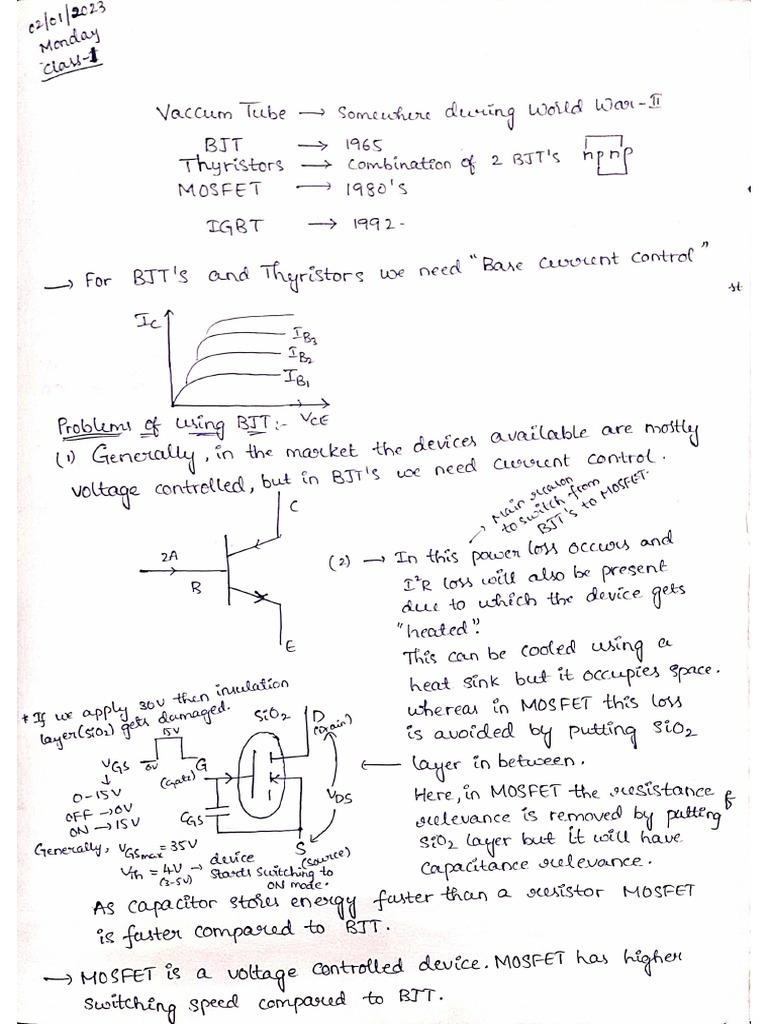 02/01/2023
Monday
Class-1
Vaccum Tube → Somewhere during World War-II
BJT → 1965
Thyristors → Combination of 2 BJT's npnp
MOSFET → 1980's
IGBT → 1992-
→ For BJT's and Thyristors we need "Base current control"
st
IC
IB3
IB2
IB1
VCE
Problems of using BJT:-
(1) Generally, in the market the devices available are mostly
voltage controlled, but in BJT's we need current control.
→ Main reason
to switch from
BJT's to MOSFET.
C
2A
B
E
(2) → In this power loss occurs and
I²R loss will also be present
due to which the device gets
"heated".
This can be cooled using a
heat sink but it occupies space.
whereas in MOSFET this loss
is avoided by putting SiO2
← layer in between.
Here, in MOSFET the resistance
relevance is removed by putting
SiO2 layer but it will have
capacitance relevance.
* If we apply 30V then insulation
layer(SiO2) gets damaged.
SiO2
D
(Drain)
15V
0V
VGS
↓
0-15V
OFF → 0V
ON → 15V
G
(Gate)
CGS
VDS
S
(Source)
Generally, VGSmax = 35V
Vth = 4V → device
(3-5V) starts switching to
ON mode.
As capacitor stores energy faster than a resistor MOSFET
is faster compared to BJT.
→ MOSFET is a voltage controlled device. MOSFET has higher
switching speed compared to BJT.